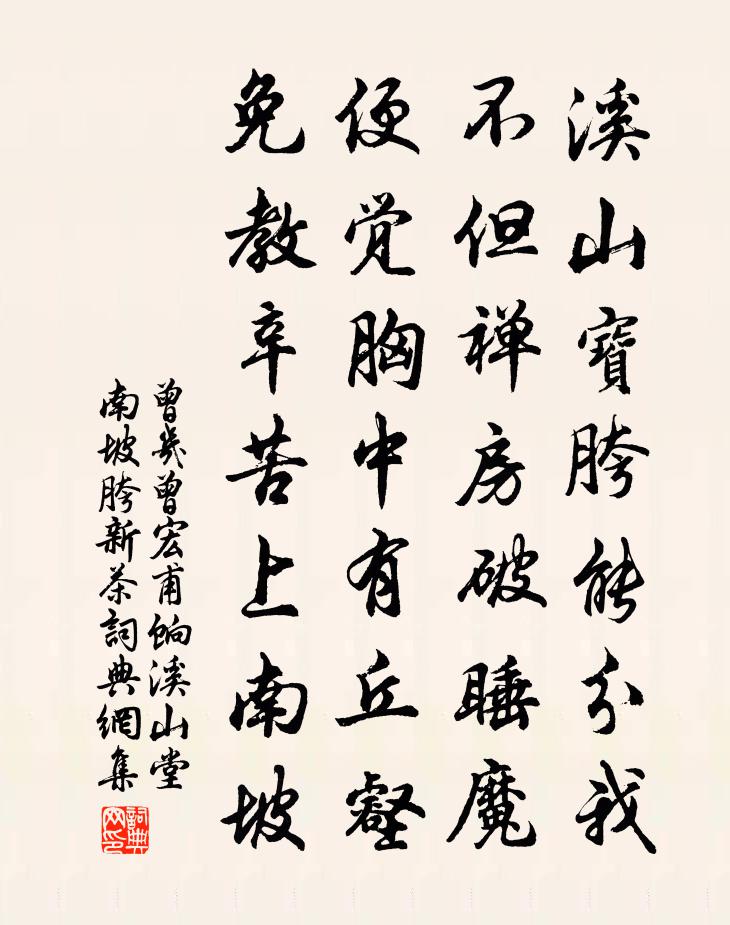 溪山寶胯能分我
不但禅房破睡魔
便觉胸中有丘壑
免教辛苦上南坡
曾幾曾宏甫餉溪山堂
南坡胯新茶詞典網集
詞典網印